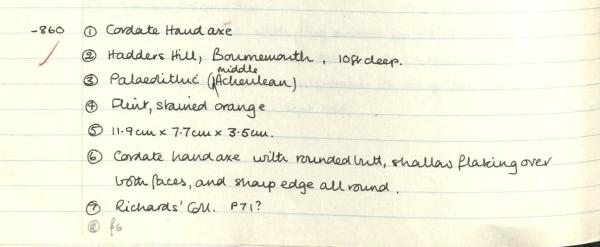 -860 ① Cordate Handaxe
② Hadders Hill, Bournemouth, 10ft deep.
③ Palaeolithic (middle Acheulean)
④ Flint, stained orange
⑤ 11.9cm x 7.7cm x 3.5cm.
⑥ Cordate handaxe with rounded butt, shallow flaking over
both faces, and sharp edge all round.
⑦ Richards' Coll. P71?
⑧ f6